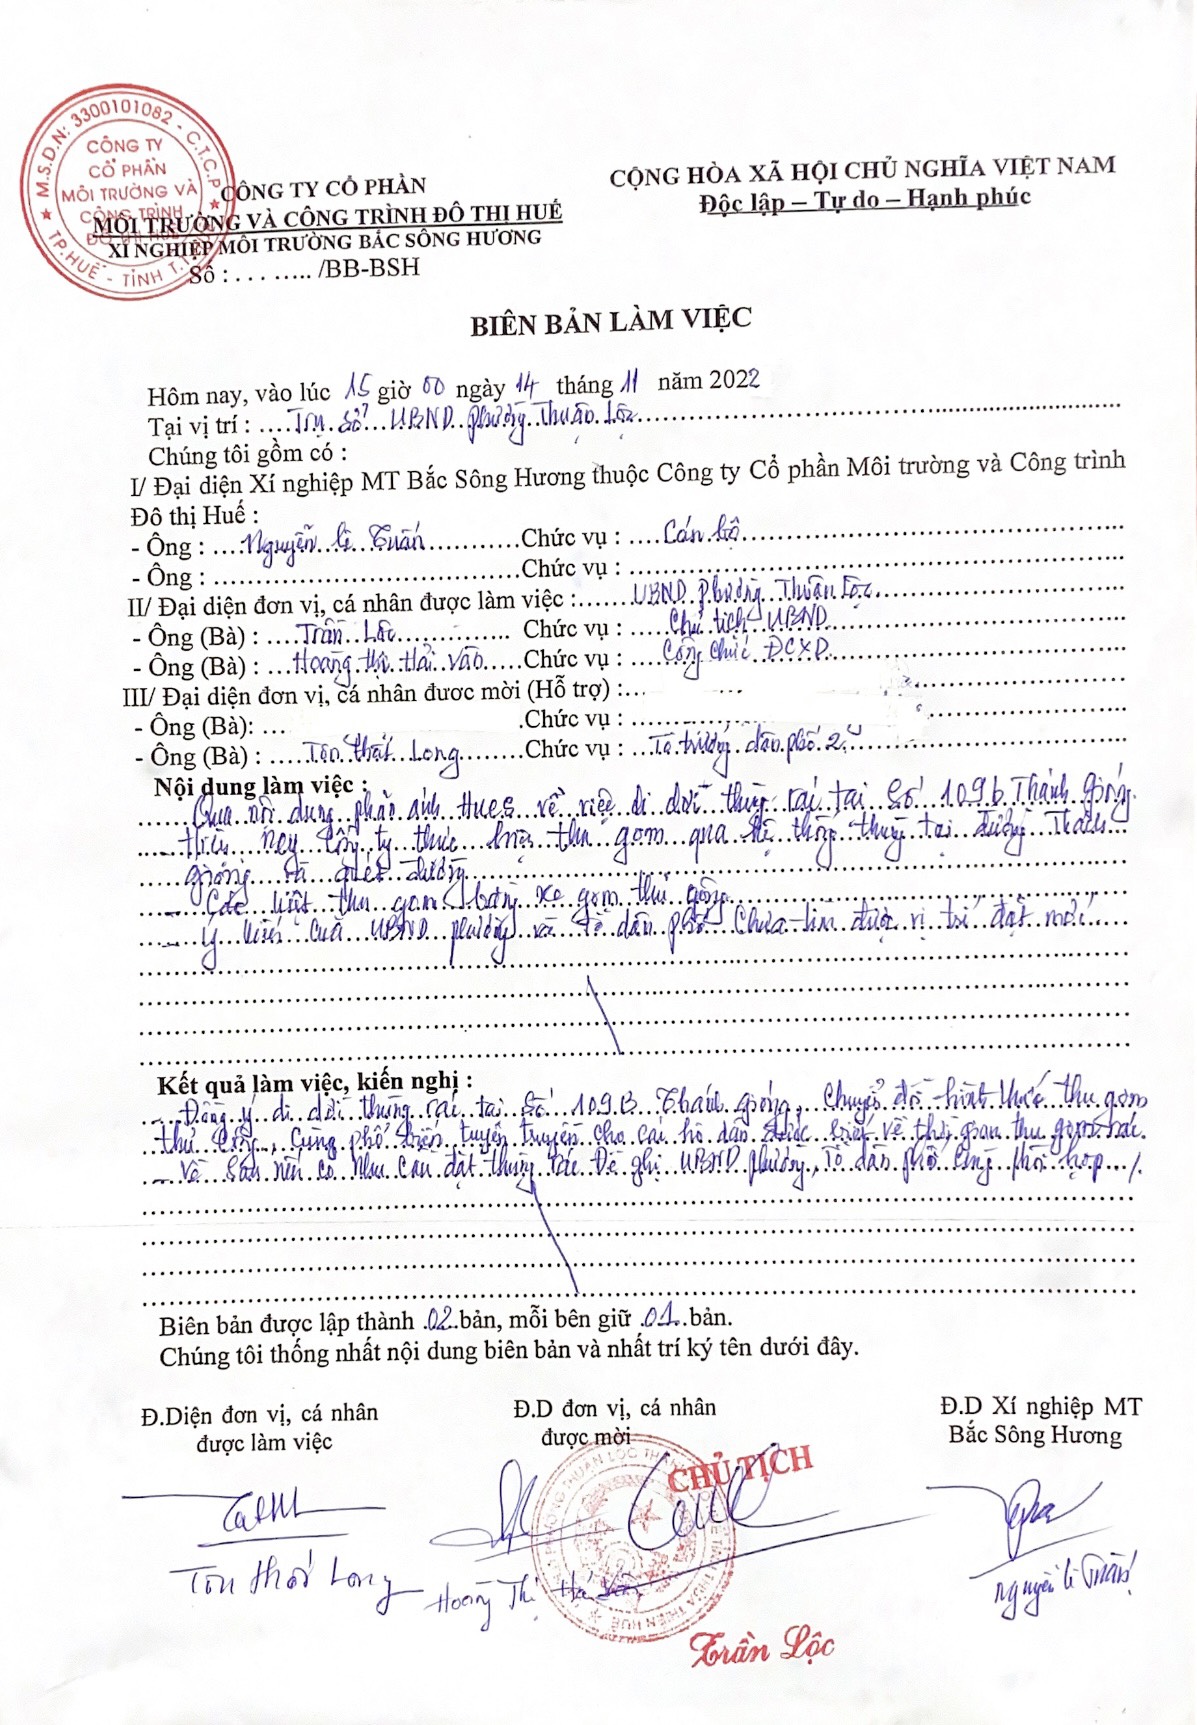 M.S.D.N: 3300101082 - C.T.C.P
CÔNG TY
CỔ PHẦN
MÔI TRƯỜNG VÀ
CÔNG TRÌNH
ĐÔ THỊ HUẾ
TP.HUẾ - TỈNH T.T
CÔNG TY CỔ PHẦN
MÔI TRƯỜNG VÀ CÔNG TRÌNH ĐÔ THỊ HUẾ
XÍ NGHIỆP MÔI TRƯỜNG BẮC SÔNG HƯƠNG
Số : . . . . ….. /BB-BSH
CỘNG HÒA XÃ HỘI CHỦ NGHĨA VIỆT NAM
Độc lập – Tự do – Hạnh phúc
BIÊN BẢN LÀM VIỆC
Hôm nay, vào lúc 15 giờ 00 ngày 14 tháng 11 năm 2022
Tại vị trí : Trụ sở UBND phường Thuận Lộc
Chúng tôi gồm có :
I/ Đại diện Xí nghiệp MT Bắc Sông Hương thuộc Công ty Cổ phần Môi trường và Công trình
Đô thị Huế :
- Ông : Nguyễn Lê Tuấn Chức vụ : Cán bộ
- Ông : Chức vụ :
II/ Đại diện đơn vị, cá nhân được làm việc : UBND phường Thuận Lộc
- Ông (Bà) : Trần Lộc Chức vụ : Chủ tịch UBND
- Ông (Bà) : Hoàng Thị Hải Vân Chức vụ : Công chức ĐCXD
III/ Đại diện đơn vị, cá nhân đươc mời (Hỗ trợ) :
- Ông (Bà): Chức vụ :
- Ông (Bà) : Tôn Thất Long Chức vụ : Tổ trưởng dân phố 2
Nội dung làm việc :
Qua nội dung phản ánh HueS về việc di dời thùng rác tại số 109b Thánh Gióng
- Hiện nay Công ty thực hiện thu gom qua hệ thống thùng tại đường Thánh
Gióng và quét đường
- Các kiệt thu gom bằng xe gom thủ công
- Ý kiến của UBND phường và Tổ dân phố chưa tìm được vị trí đặt mới
Kết quả làm việc, kiến nghị :
- Đồng ý di dời thùng rác tại số 109B Thánh Gióng, chuyển đổi hình thức thu gom
thủ công, cùng phổ biến tuyên truyền cho các hộ dân được biết về thời gian thu gom rác
- Về sau nếu có nhu cầu đặt thùng rác Đề nghị UBND phường, Tổ dân phố cùng phối hợp /.
Biên bản được lập thành 02 bản, mỗi bên giữ 01 bản.
Chúng tôi thống nhất nội dung biên bản và nhất trí ký tên dưới đây.
Đ.Diện đơn vị, cá nhân
được làm việc
Tôn Thất Long
Đ.D đơn vị, cá nhân
được mời
CHỦ TỊCH
Hoàng Thị Hải Vân
Trần Lộc
Đ.D Xí nghiệp MT
Bắc Sông Hương
Nguyễn Lê Tuấn